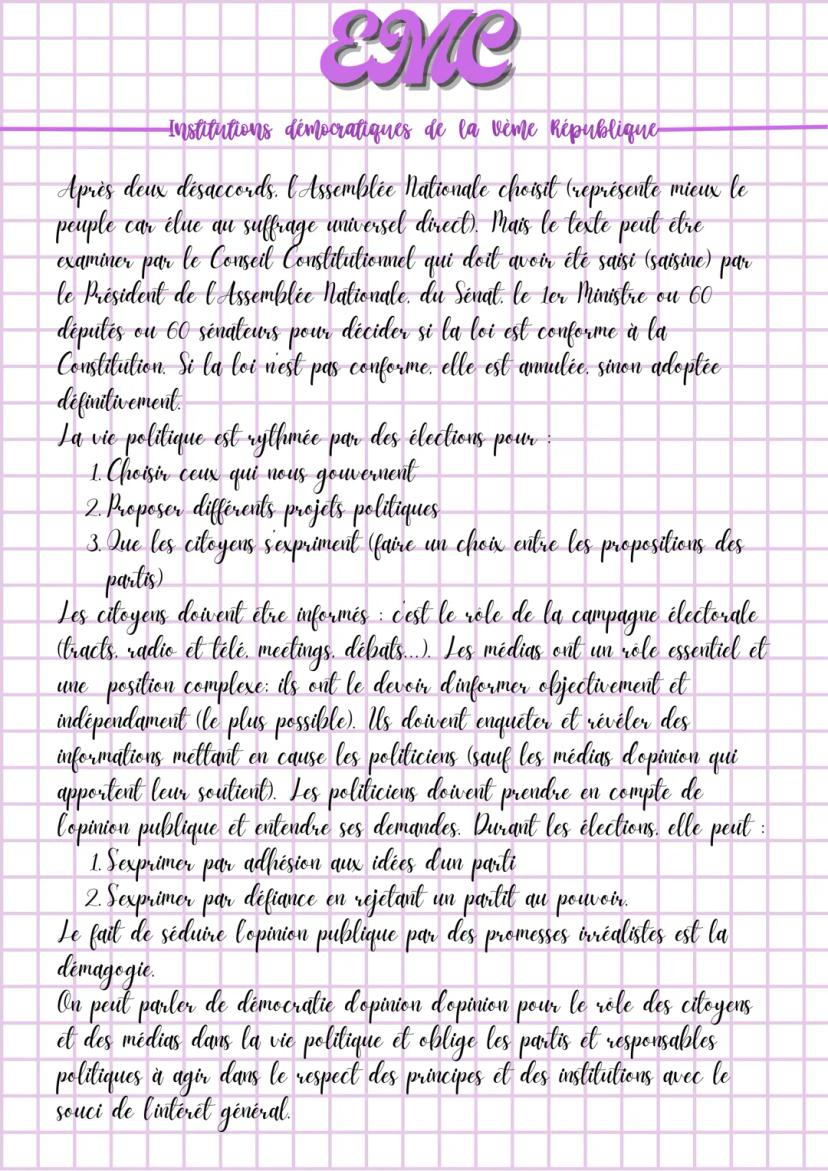 EMC
Institutions démocratiques de la Vème République
Après deux désaccords, l'Assemblée Nationale choisit (représente mieux le
peuple car élue au suffrage universel direct). Mais le texte peut être
examiner par le Conseil Constitutionnel qui doit avoir été saisi (saisine) par
le Président de l'Assemblée Nationale, du Sénat, le 1er Ministre ou 60
députés ou 60 sénateurs pour décider si la loi est conforme à la
Constitution. Si la loi n'est pas conforme, elle est annulée, sinon adoptée
définitivement.
La vie politique est rythmée par des élections pour :
1. Choisir ceux qui nous gouvernent
2. Proposer différents projets politiques
3. Que les citoyens s'expriment (faire un choix entre les propositions des
partis)
Les citoyens doivent être informés : c'est le rôle de la campagne électorale
(tracts, radio et télé, meetings, débats...). Les médias ont un rôle essentiel et
une position complexe: ils ont le devoir d'informer objectivement et
indépendament (le plus possible). Ils doivent enquêter et révéler des
informations mettant en cause les politiciens (sauf les médias d'opinion qui
apportent leur soutient). Les politiciens doivent prendre en compte de
l'opinion publique et entendre ses demandes. Durant les élections, elle peut :
1. S'exprimer par adhésion aux idées d'un parti
2. S'exprimer par défiance en rejetant un partit au pouvoir.
Le fait de séduire l'opinion publique par des promesses irréalistes est la
démagogie.
On peut parler de démocratie d'opinion d'opinion pour le rôle des citoyens
et des médias dans la vie politique et oblige les partis et responsables
politiques à agir dans le respect des principes et des institutions avec le
souci de l'intérêt général.